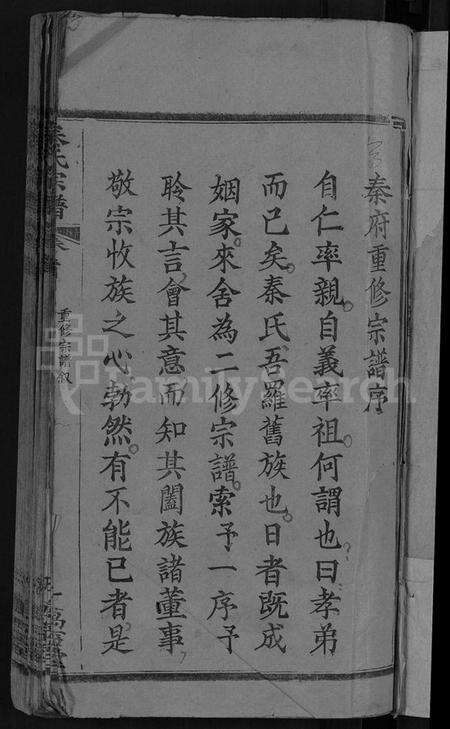 秦府重修宗譜序
自仁率親。自義率祖。何謂也曰孝弟
而已矣。秦氏吾羅舊族也。日者既成
姻家。來舍為二修宗譜。索予一序。予
聆其言。會其意而知其闔族諸董事
敬宗收族之心勃然。有不能已者。是
秦氏宗譜
重修宗譜叙
FamilySearch